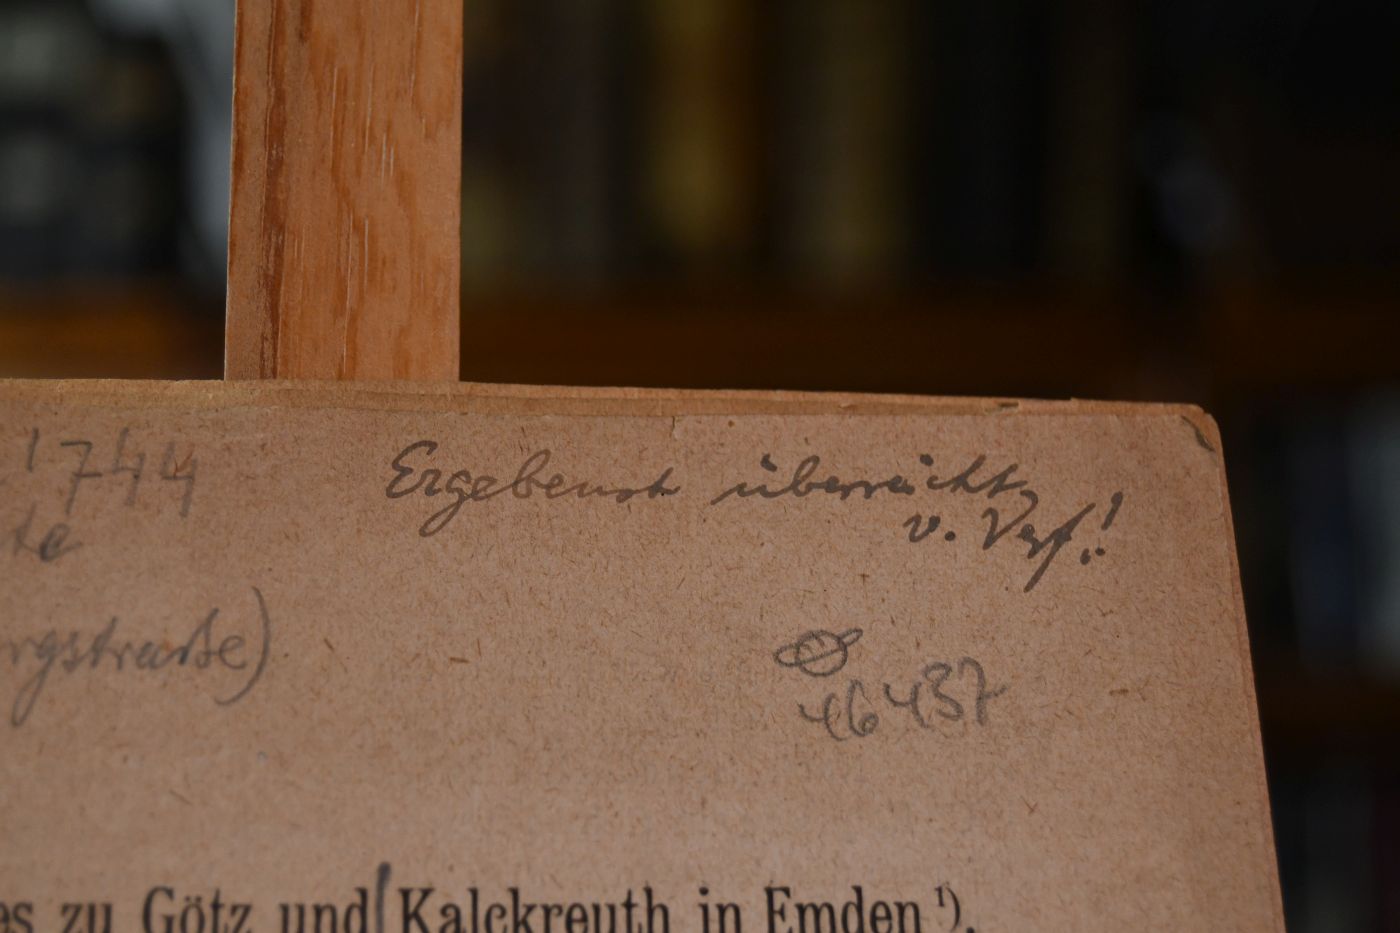 1744 Ergebenst überreicht
v. Verf!
te
rgstraße)
46437
es zu Götz und Kalckreuth in Emden ¹).